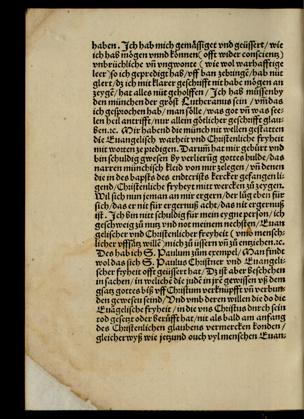 haben. Ich hab mich gemässiget vnd geüssert/ wie
ich hab mögen vnnd können (offt wider conscientz)
vnbrüchliche vñ vngwonte (wie wol warhafftige
leer) so ich gepredigt hab/ vff ban zehingē/ hab nüt
glert/ dz ich mit klarer geschrifft nit habe mögen an
zeygē/ hat alles nüt geholffen/ Ich hab müssen by
den münchen der gröst Lutheranus sein/ vm das
ich gesprochen hab/ man sölle/ was got vñ was see-
len heil antrifft/ nur allein götlicher geschrifft glau-
ben. ꝛc. Mir habend die münch nit wellen gestatten
die Euangelisch warheit vnd Christenliche fryheit
mit worten ze predigen. Darum hat mir gebürt vnd
bin schuldig gwesen by verlierūg gottes hulde/ das
narren münchisch kleid von mir zelegen/ vñ denen
die in des bapsts des endcrists kercker gefangen li-
gend/ Christenliche fryheyt mitt wercken zů zeygen.
Wil sich nun jeman an mir ergern/ der lůg eben für
sich/ das er nit für ergernuß acht/ das nit ergernuß
ist. Ich bin nitt schuldig für mein eygne person/ ich
geschweyg zů nutz vnd not meinem nechsten/ Euan
gelischer vnd Christenlicher fryheit (vmb mensch-
licher vffsätz willē) mich zů üssern vñ zů entziehen. ꝛc.
Des hab ich S. Paulum zům exempel/ Man findt
wol das sich S. Paulus Christner vnd Euangeli-
scher fryheit offt geüssert hat/ Dz ist aber beschehen
in sachen/ in welichē die jude in jrē gewissen vß dem
gsatz gottes biß vff Christum verknüpfft vñ verbun
den gewesen seind/ Vnd vmb deren willen die do die
Euāgelische fryheit/ in die vns Christus durch sein
tod gesetzt oder berüfft hat/ nit als bald am anfang
des Christenlichen glaubens vermercken konden/
gleicher wyß wie jetzund ouch vyl menschen Euan-